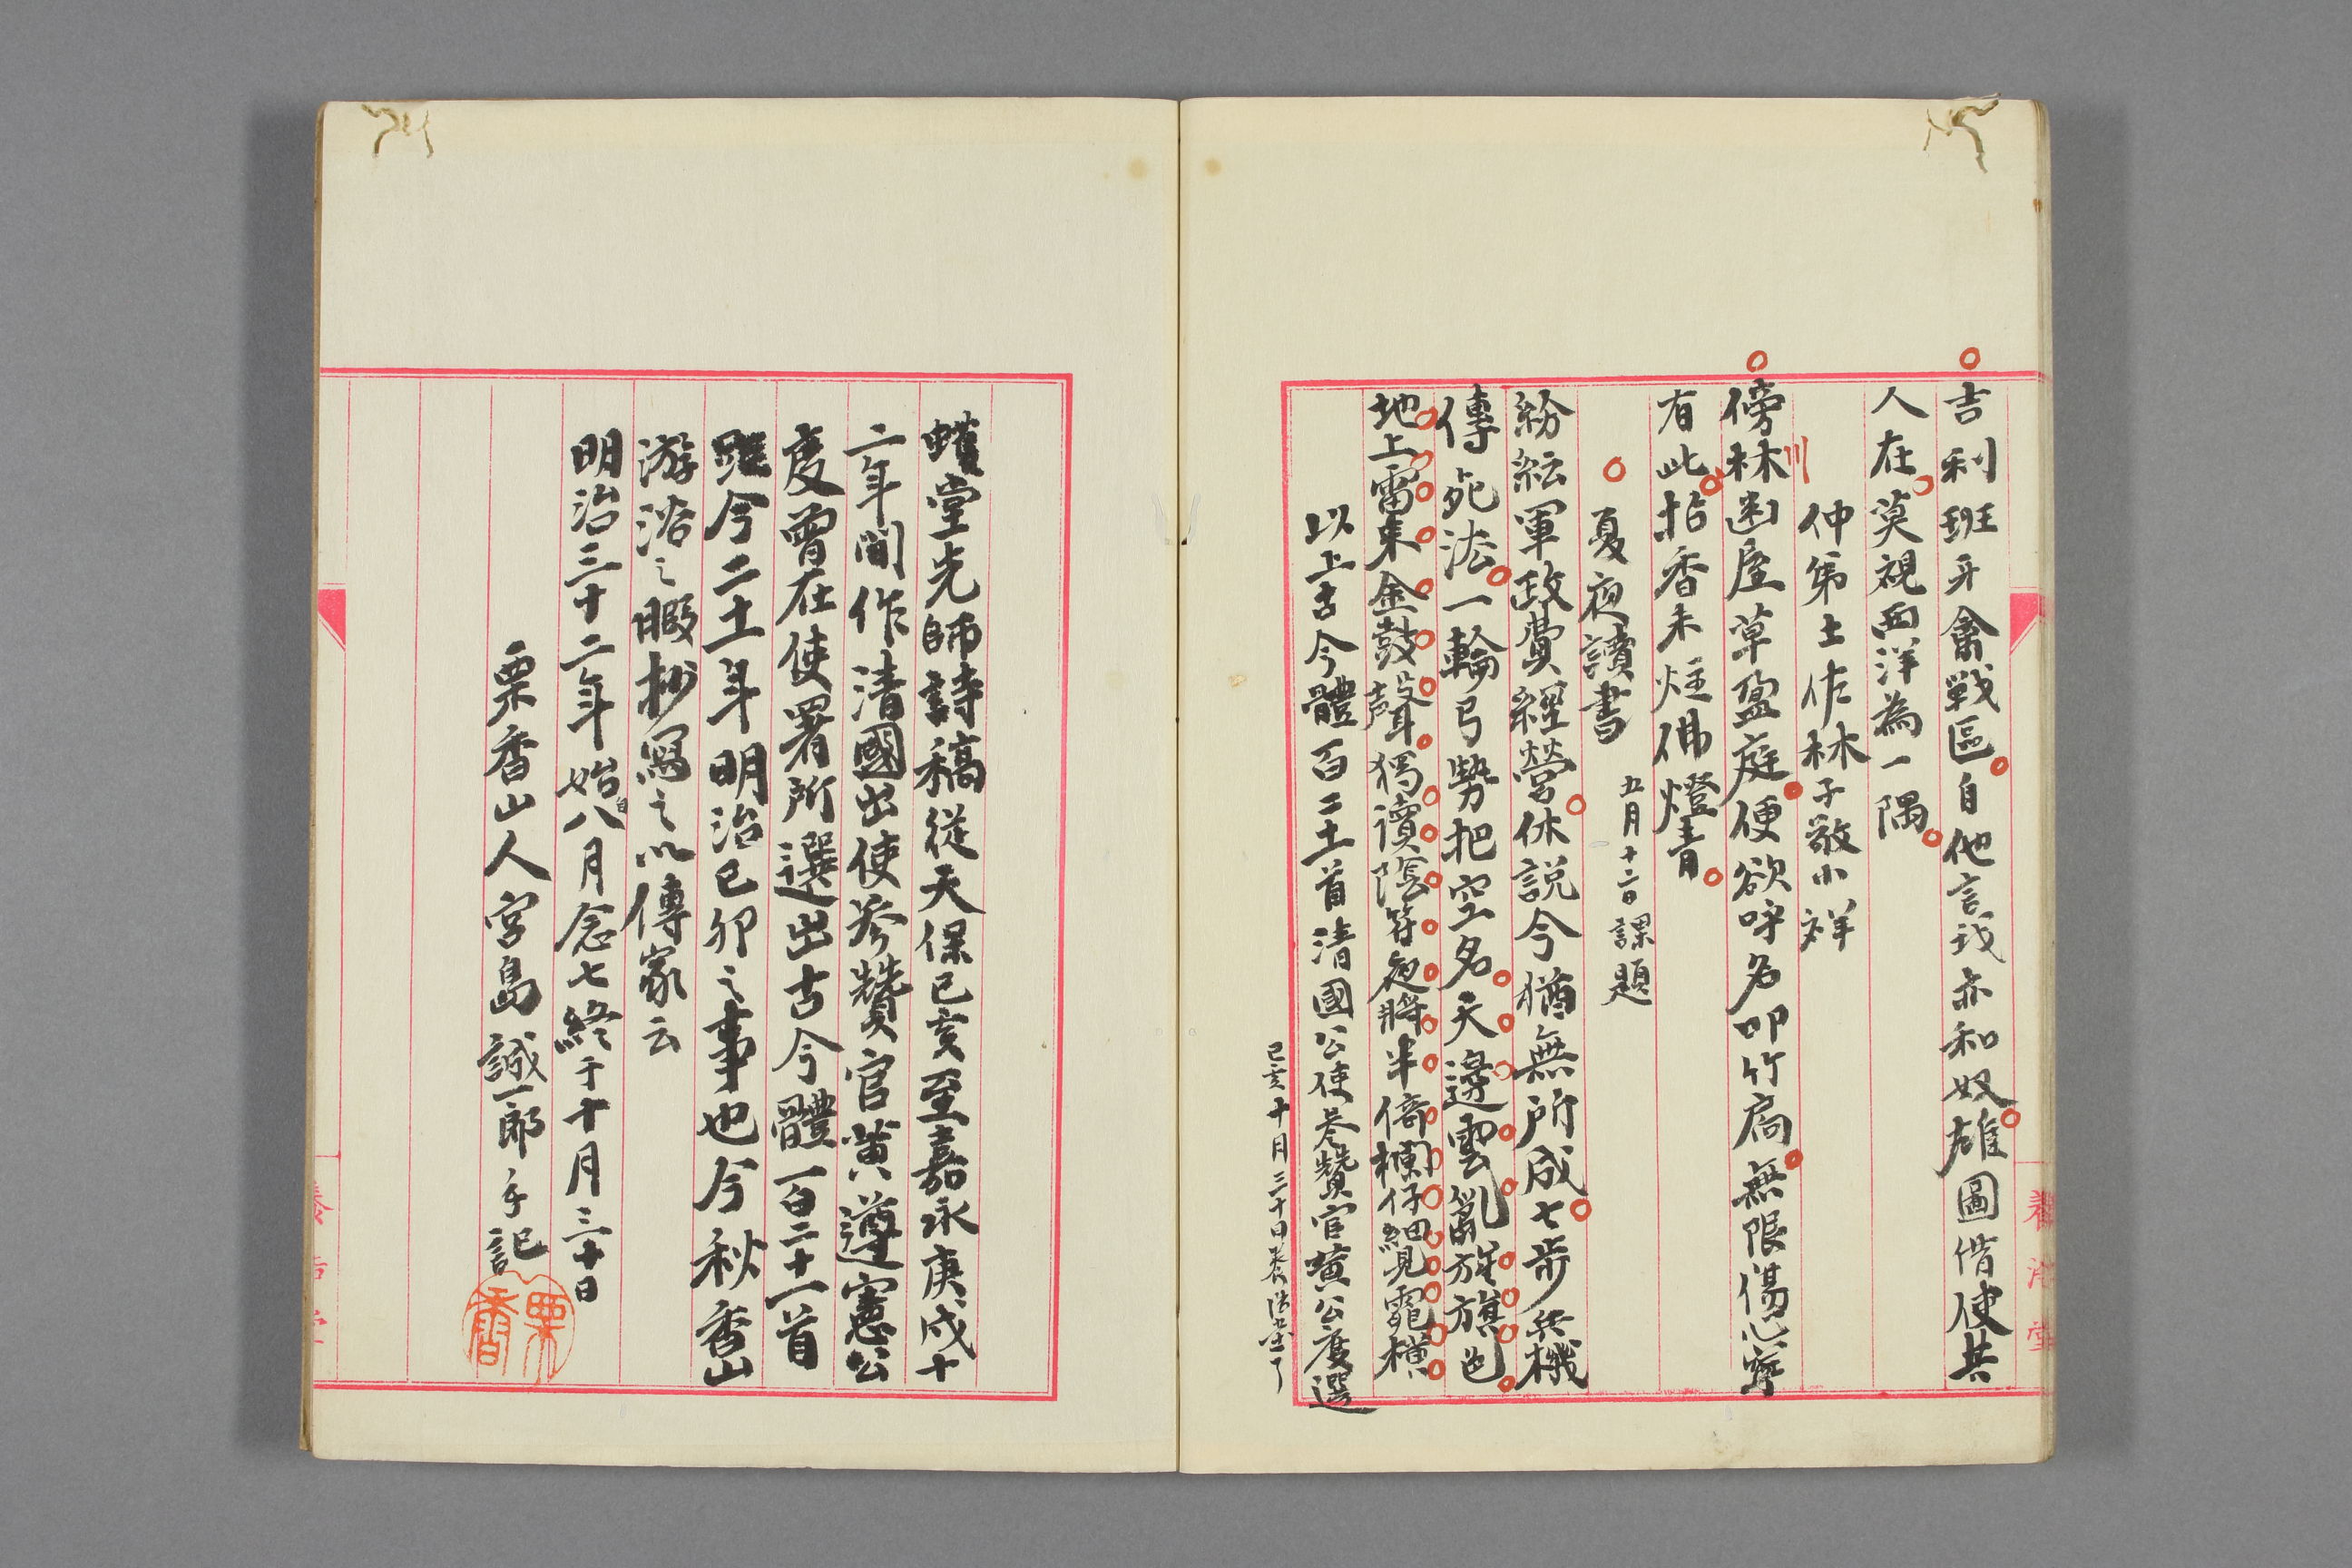 吉利班牙禽戰區自他言我亦和奴雄圖偕使共
人在莫視西洋為一隅
仲第士佐林子敬小祥
傍林幽屋草盈庭便欲呼名叩竹扃無限傷心寧
有此拈香未炷佛燈青
夏夜讀書 五月十二日課題
紛紜軍政費經營休説今猶無所成七步兵機
傳死法一輪弓勢把空名天邊雲亂旌旗色
地上雷来金鼓聲獨讀陰符夜將半倚欄仔細見霓橫
以上古今體百二十一首清國公使參贊官黄公度選
己亥十月三十日養浩堂了
養浩堂
蠖堂先師詩稿從天保己亥至嘉永庚戌十
二年間作清國出使參贊官黄遵憲公
度曾在使署所選出古今體一百二十一首
距今二十一年明治己卯之事也今秋香山
游浴之暇抄寫之以傳家云
明治三十二年始自八月念七終于十月三十日
栗香山人宮島誠一郎手記
栗香